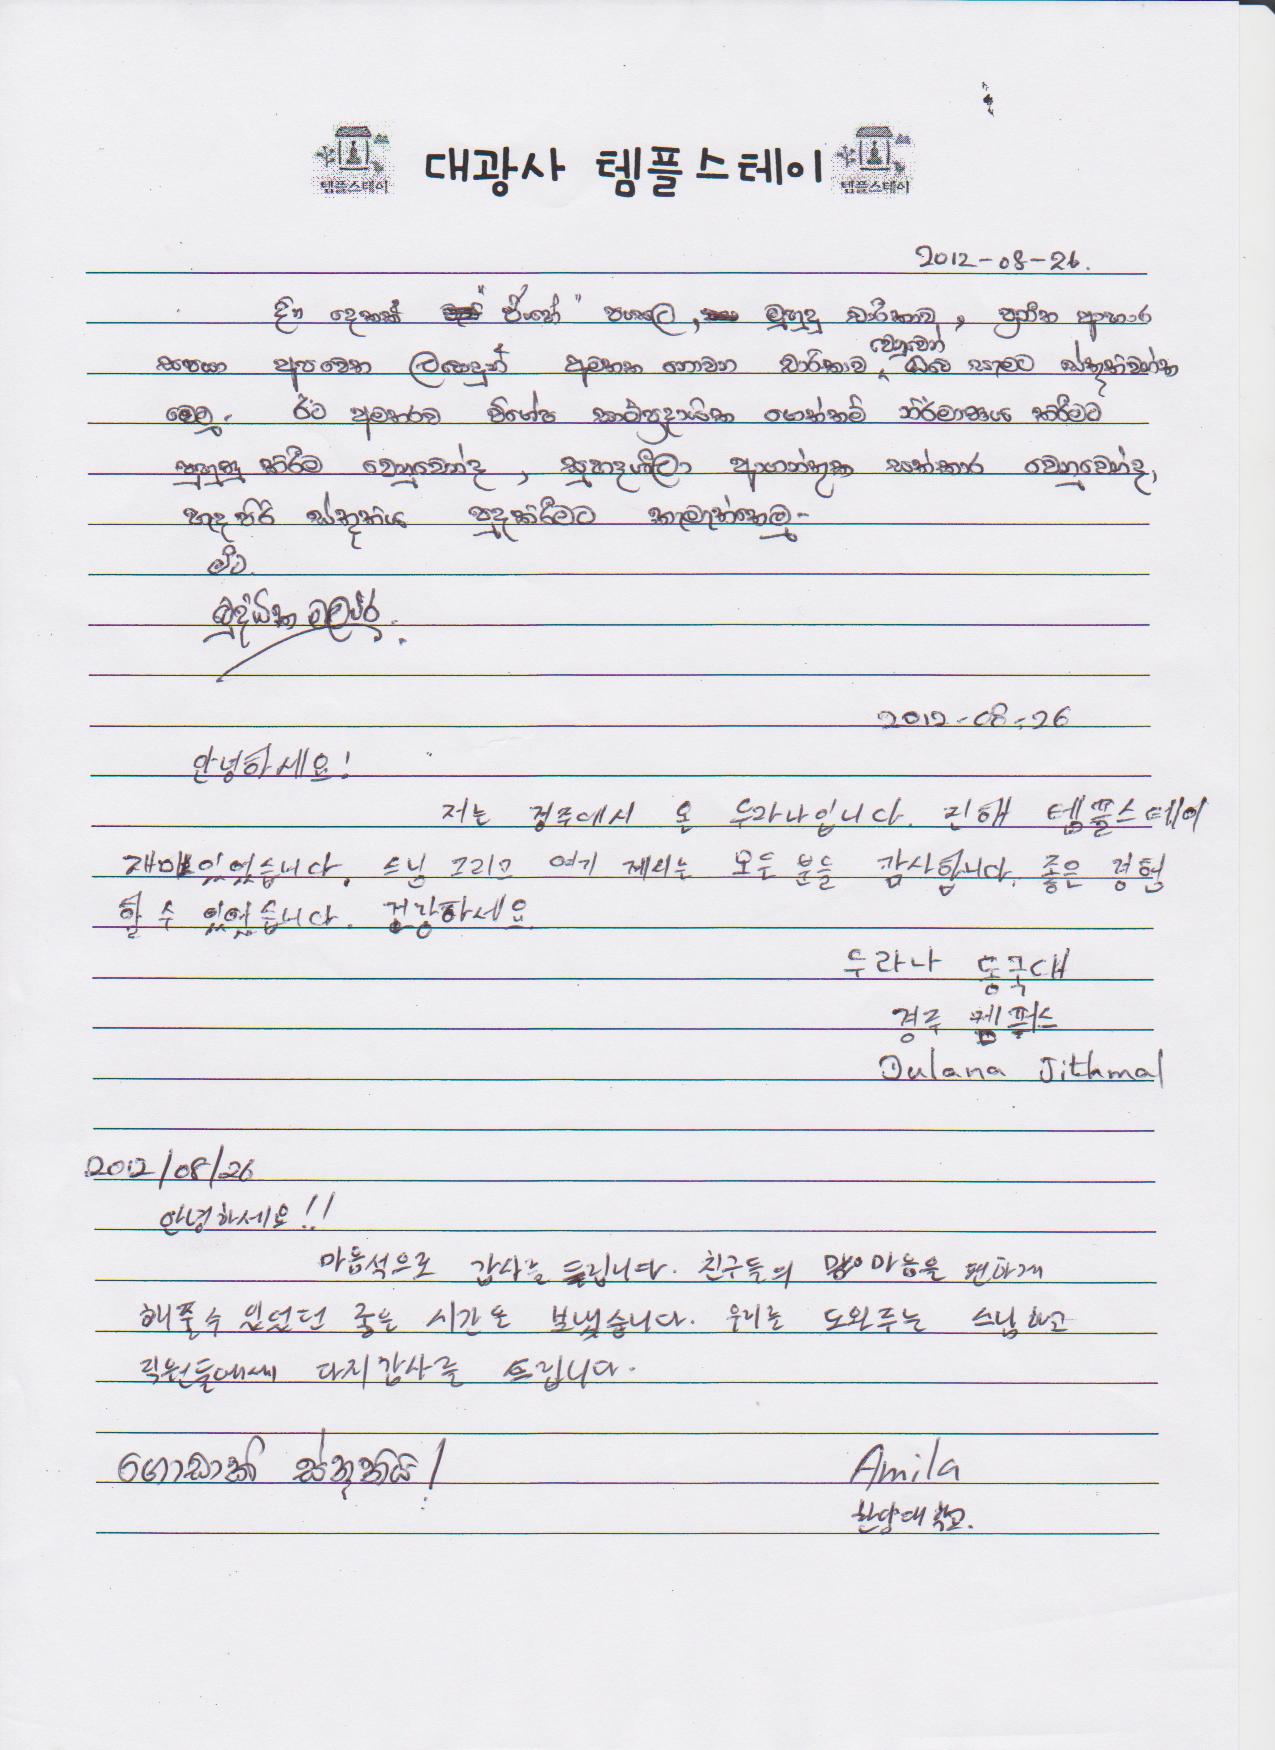 대광사 템플스테이
템플스테이
템플스테이
2012-08-26.
දින දෙකක් "ජිංහේ" පන්සලේ, මුහුදු චාරිකාව, ප්‍රනීත ආහාර
සපයා අපවෙත ලබාදුන් අමතක නොවන චාරිකාව වෙනුවෙන් ඔබ සැමට ස්තූතිවන්ත
වෙමු. ඊට අමතරව විශේෂ සාම්ප්‍රදායික ගොත්තම් නිර්මාණය කිරීමට
පුහුණු කිරීම වෙනුවෙන්ද, සුහදශීලී ආගන්තුක සත්කාර වෙනුවෙන්ද,
හෘද පිරි ස්තූතිය පුදකිරීමට කැමැත්තෙමු.
මීට
2012-08-26
안녕하세요!
저는 경주에서 온 두라나입니다. 진해 템플스테이
재매있었습니다. 스님 그리고 여기 계시는 모두 분들 감사합니다. 좋은 경헌
할 수 있었습니다. 건강하세요.
두라나 동국대
경주 켐퍼스
Dulana Jithmal
2012/08/26
안녕하세요!!
마음석으로 감사를 드립니다. 친구들의 마음을 편하게
해줄수 있었던 좋은 시간은 보냈습니다. 우리를 도와주는 스님하고
직원들에세 다지감사를 드립니다.
ගොඩාක් ස්තූතියි!
Amila
한남대학교.